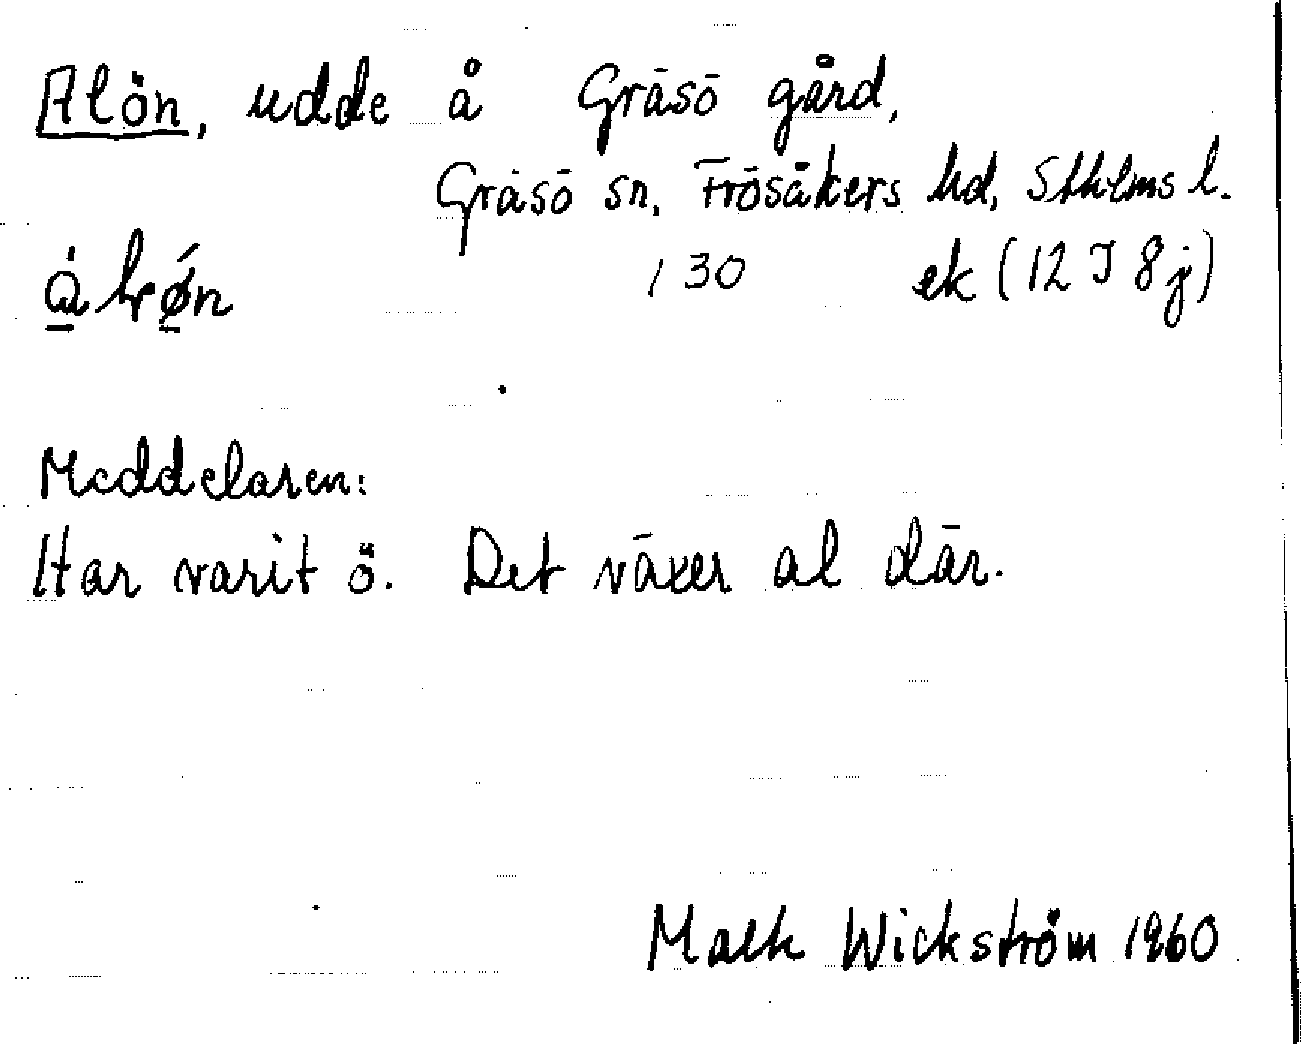 Alön, udde å Gräsö gård,
Gräsö sn, Frösåkers hd, Sthlms l.
130 ek (12 I 8 j)
Meddelaren:
Har varit ö. Det växer al där.
Wickström 1960